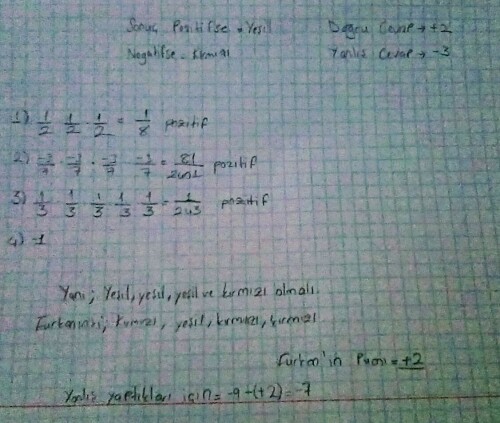 Sonuç Pozitifse = Yeşil Doğru Cevap → +2
Negatifse = Kırmızı Yanlış Cevap → -3
1) 1/2 1/2 · 1/2 = 1/8 pozitif
2) -3/7 · -3/7 · -3/7 -3/7 = 81/2401 pozitif
3) 1/3 1/3 · 1/3 1/3 1/3 = 1/243 pozitif
4) -1
Yani; Yeşil, yeşil, yeşil ve kırmızı olmalı.
Furkanınki; Kırmızı, yeşil, kırmızı, kırmızı
Furkan'ın Puanı = +2
Yanlış yaptıkları için = -9 -(+2) = -7